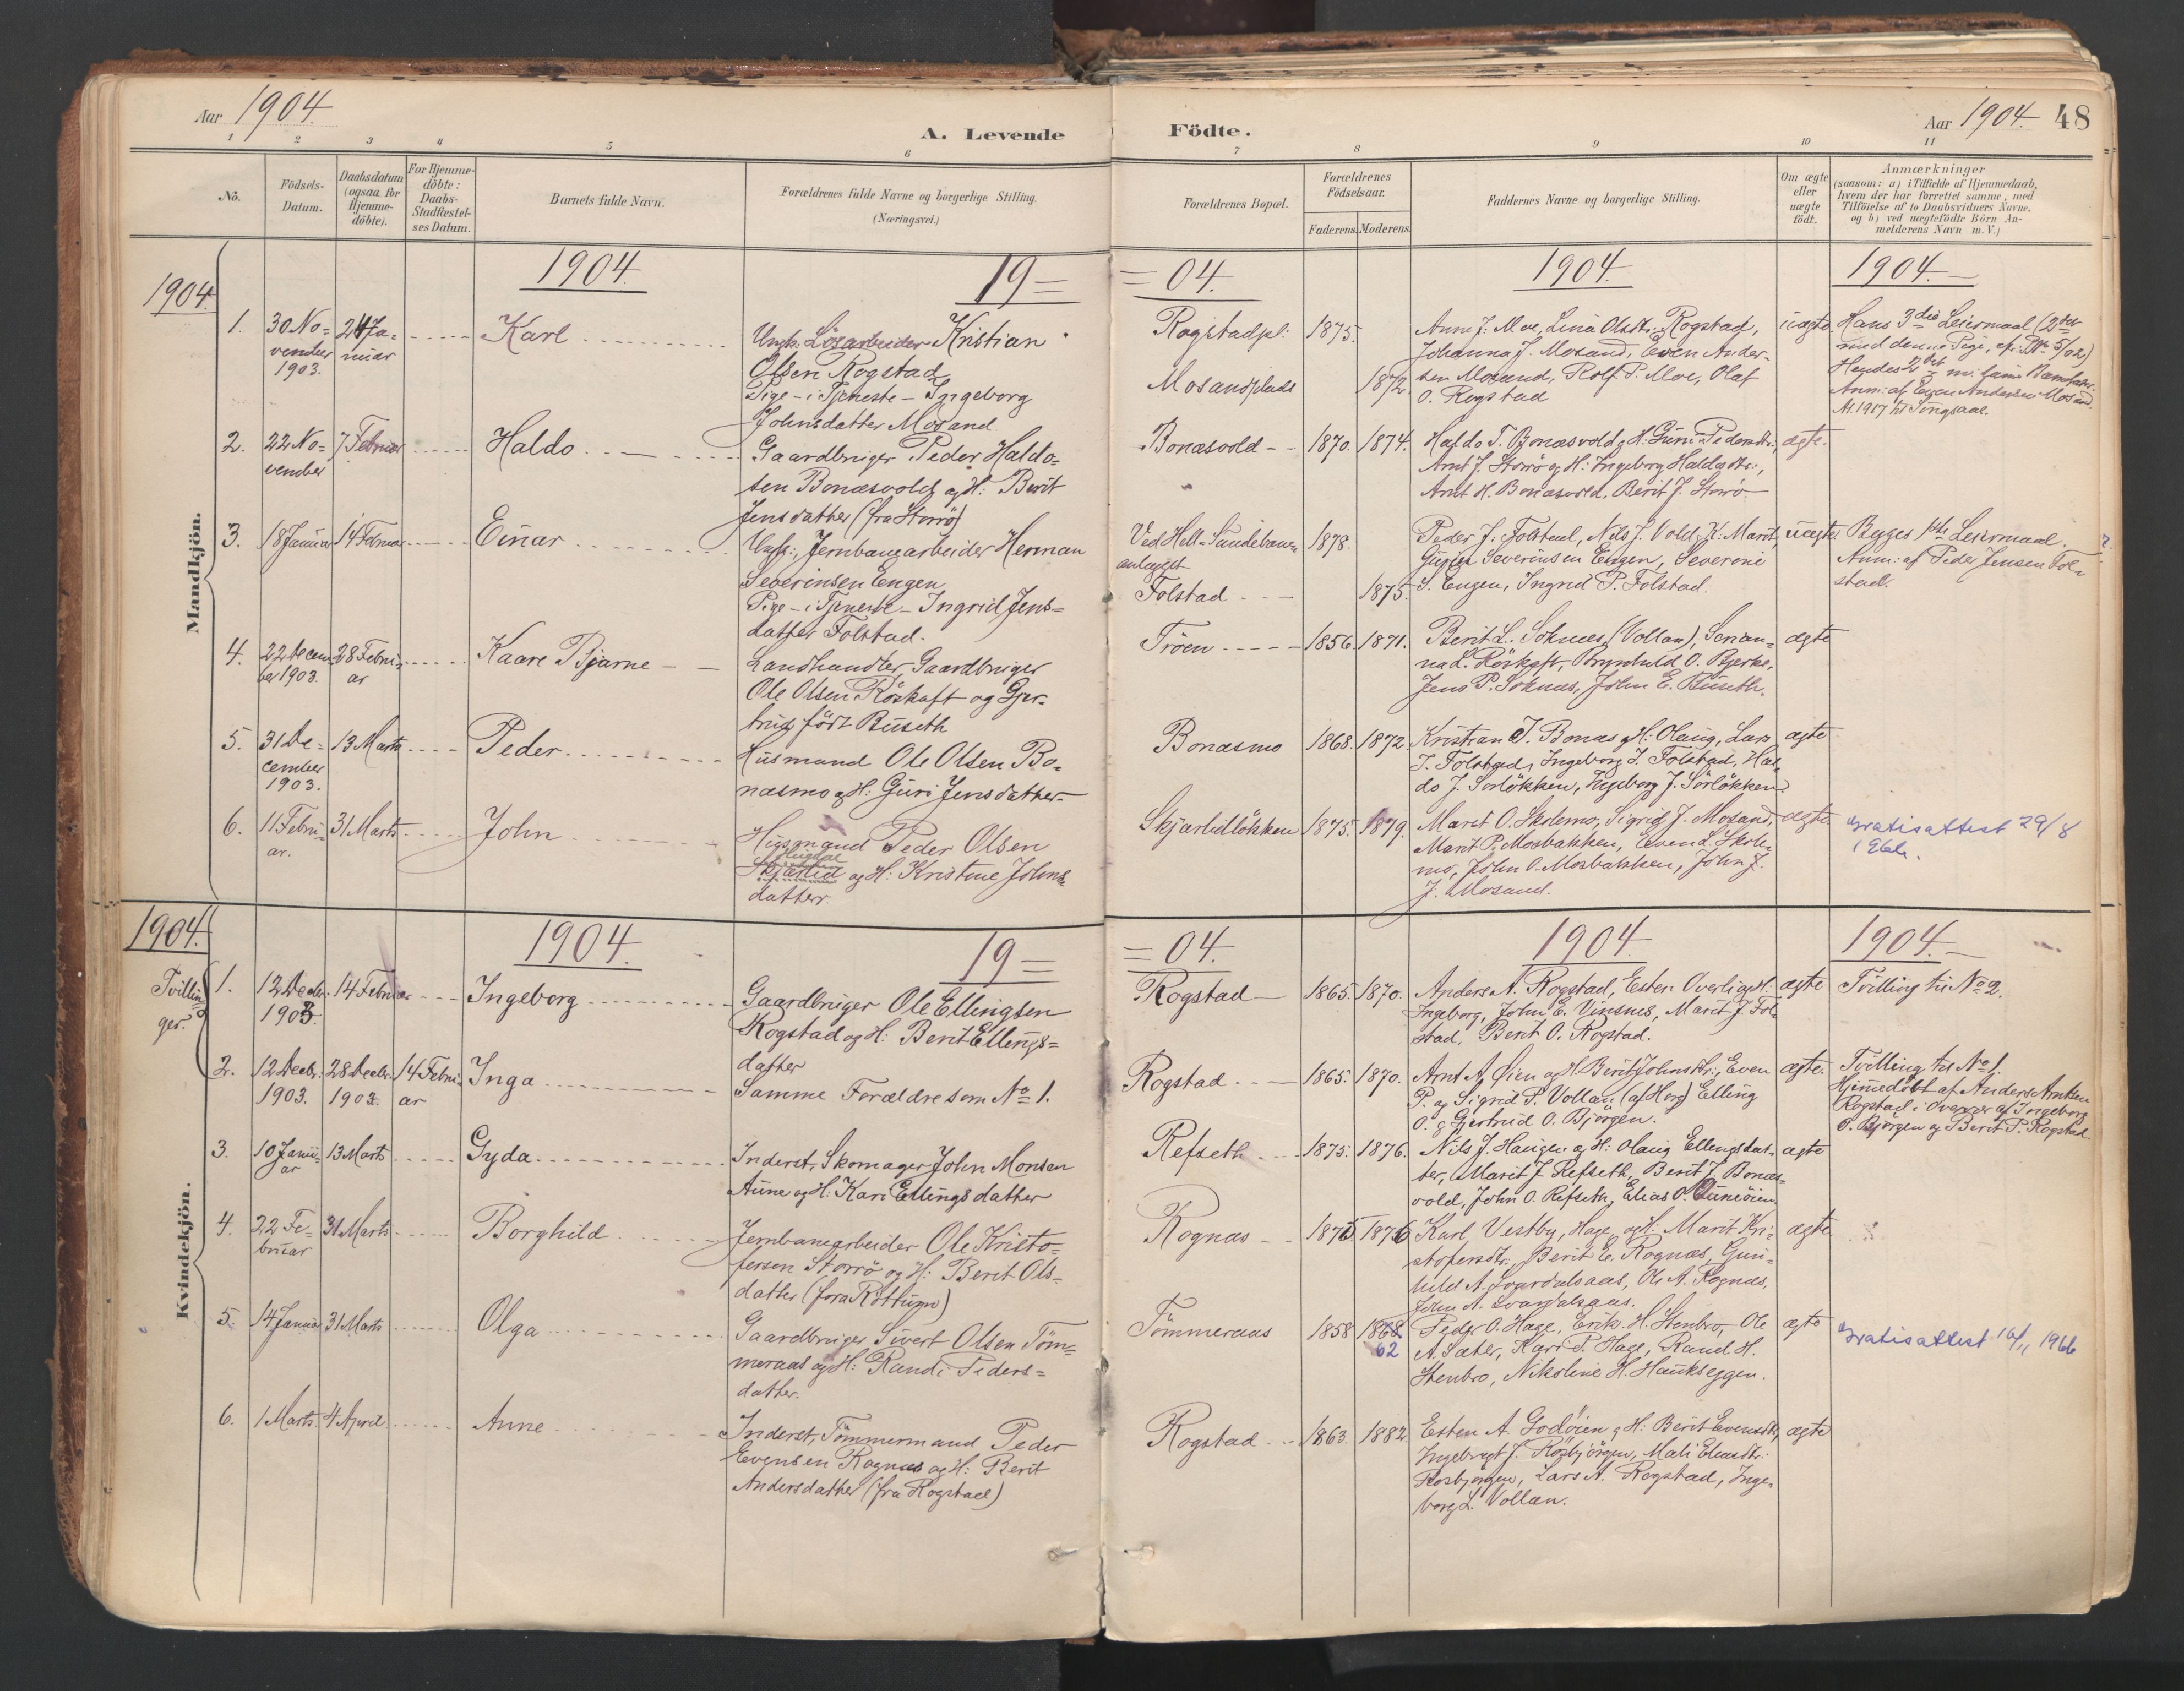 Aar 1904.
A. Levende
Födte.
Aar 1904. 48
1 2 3 4 5 6
7 8 9 10 11
No.
Födsels-
Datum.
Daabsdatum
(ogsaa for
Hjemme-
döbte).
For Hjemme-
döbte:
Daabs-
Stadfæstel-
ses Datum.
Barnets fulde Navn.
Forældrenes fulde Navne og borgerlige Stilling.
(Næringsvei.)
Forældrenes Bopæl.
Forældrenes
Födselsaar.
Faderens. Moderens.
Faddernes Navne og borgerlige Stilling.
Om ægte
eller
uægte
født.
Anmærkninger
(saasom: a) i Tilfælde af Hjemmedaab,
hvem der har forrettet samme, med
Tilföielse af to Daabsvidners Navne.
og b) ved uægtefödte Börn An-
melderens Navn m. V.)
1904.
1904.
19=
=04.
1904.
1904.
Mandkjön.
1.
30 No-
vember
1903.
24 Ja-
nuar
Karl
Ungk. Lösarbeider Kristian
Olsen Rogstad
Pige - i Tjeneste - Ingeborg
Johnsdatter Mosand.
Rogstadpl:
Mosandplads
1875.
1872.
Anne J. Moe, Lina Olsdtr. Rogstad,
Johanna J. Mosand, Even Ander-
sen Mosand, Rolf P. Moe, Olaf
O. Rogstad
uægte
Hans 3die Leiermaal (2det
med denne Pige, cfr. No 5/02)
Hendes 2det m. samme Barnefader.
Anm: af Even Andersen Mosand.
At. 1917 til Singsaas.
2.
22 No-
vember
7 Februar
Haldo
Gaardbruger Peder Haldo-
sen Bonæsvold og H: Berit
Jensdatter (fra Storrö)
Bonæsvold
1870. 1874.
Haldo T. Bonæsvold og H: Guri Pedersdtr.,
Arnt J. Storrö og H: Ingeborg Haldosdtr.,
Arnt H. Bonæsvold, Berit J. Storrö
ægte.
3.
18 Januar
14 Februar
Einar
Ungk:, Jernbanearbeider Herman
Severinsen Engen
Pige - i Tjeneste - Ingrid Jens-
datter Folstad.
Ved Hell-Sundebanen
anlægget
Folstad
1878.
1875.
Peder J. Folstad, Nils J. Vold, K. Marit,
Severinsen Engen, Severine
S. Engen, Ingrid P. Folstad.
uægte
Begges 1ste Leiermaal.
Anm: af Peder Jensen Fol-
stad.
4.
22 Decem-
ber 1903.
28 Febru-
ar
Kaare Bjarne
Landhandler, Gaardbruger
Ole Olsen Röskaft og Gjer-
trud född Buseth
Tröen
1856. 1871.
Berit L. Soknæs (Vollan), Senan-
na L. Röskaft, Brynhild O. Bjerke,
Jens P. Soknæs, John E. Buseth.
ægte
5.
31 De-
cember
1903.
13 Marts
Peder
Husmand Ole Olsen Bo-
næsmo og H: Guri Jensdatter
Bonæsmo
1868. 1872
Kristian J. Bonæs og H: Olaug, Lars
J. Folstad, Ingeborg J. Folstad, Hal-
do J. Sorlökken, Ingeborg J. Sörlökken.
ægte
6.
11 Febru-
ar.
31 Marts
John
Husmand Peder Olsen
Skjærlid og H: Kristine Johns-
datter.
Skjærlidlökken
1875. 1879.
Marit O. Skolemo, Sigrid J. Mosand,
Marit P. Mosbakken, Even L. Skole-
mo, John O. Mosbakken, John J.
J. Mosand.
ægte
Gratisattest 29/8
1966.
1904.
1904.
19=
=04.
1904.
1904.
Kvindekjön.
Tvillin-
ger.
1.
12 Decbr.
1903.
14 Februar
Ingeborg
Gaardbruger Ole Ellingsen
Rogstad og H: Berit Ellings-
datter
Rogstad
1865. 1870.
Anders A. Rogstad, Esten Overlig og H:
Ingeborg, John E. Vinsnes, Marit J. Fol-
stad, Berit O. Rogstad.
ægte
Tvilling til No 2.
2.
12 Decbr.
1903.
28 Decbr.
1903.
14 Febru-
ar
Inga
Samme Forældre som No 1.
Rogstad
1865. 1870.
Arnt A. Öien og H: Berit Johnsdtr., Even
P. og Sigrid P. Vollan (af Horg) Elling
O. & Gjertrud O. Bjørgen.
ægte.
Tvilling til No 1.
Hjemmedöbt af Anders Arntsen
Rogstad i Overvær af Ingeborg
O. Bjørgen og Berit P. Rogstad.
3.
10 Janu-
ar
13 Marts
Gyda
Inderst, Skomager John Monsen
Aune og H: Kari Ellingsdatter
Refseth
1875. 1876.
Nils J. Haugen og H: Olaug Ellingsdat-
ter, Marit J. Refseth, Berit J. Bonæs-
vold, John O. Refseth, Elias O.
ægte
4.
22 Fe-
bruar
31 Marts
Borghild
Jernbanearbeider Ole Kristo-
fersen Storrö og H: Berit Ols-
datter (fra Röttum)
Rognæs
1875 1876
Karl Vestby, Hage, og H: Marit Kri-
stofersdtr. Berit E. Rognæs, Gun-
hild A. Svardalsaas, Ole A. Rognæs,
John A. Svardalsaas.
ægte
5.
14 Januar
31 Marts
Olga
Gaardbruger Sivert Olsen Töm-
meraas og H: Randi Peders-
datter.
Tömmeraas
1858 1868
62
Peder O. Hage, Erik H. Stenbro, Ole
A. Sæter, Kari P. Hage, Randi H.
Stenbro, Nikoline H. Haukseggen.
ægte
Gratisattest 16/11 1966
6.
1 Marts
4 April
Anne
Inderst, Tömmermand Peder
Evensen Rognæs og H: Berit
Andersdatter (fra Rogstad)
Rogstad
1863. 1882
Esten A. Godöien og H: Berit Evensdtr.,
Ingebrigt J. Rosbjörgen, Mali
Rosbjörgen, Lars A. Rogstad, Inge-
borg L. Vollan.
ægte